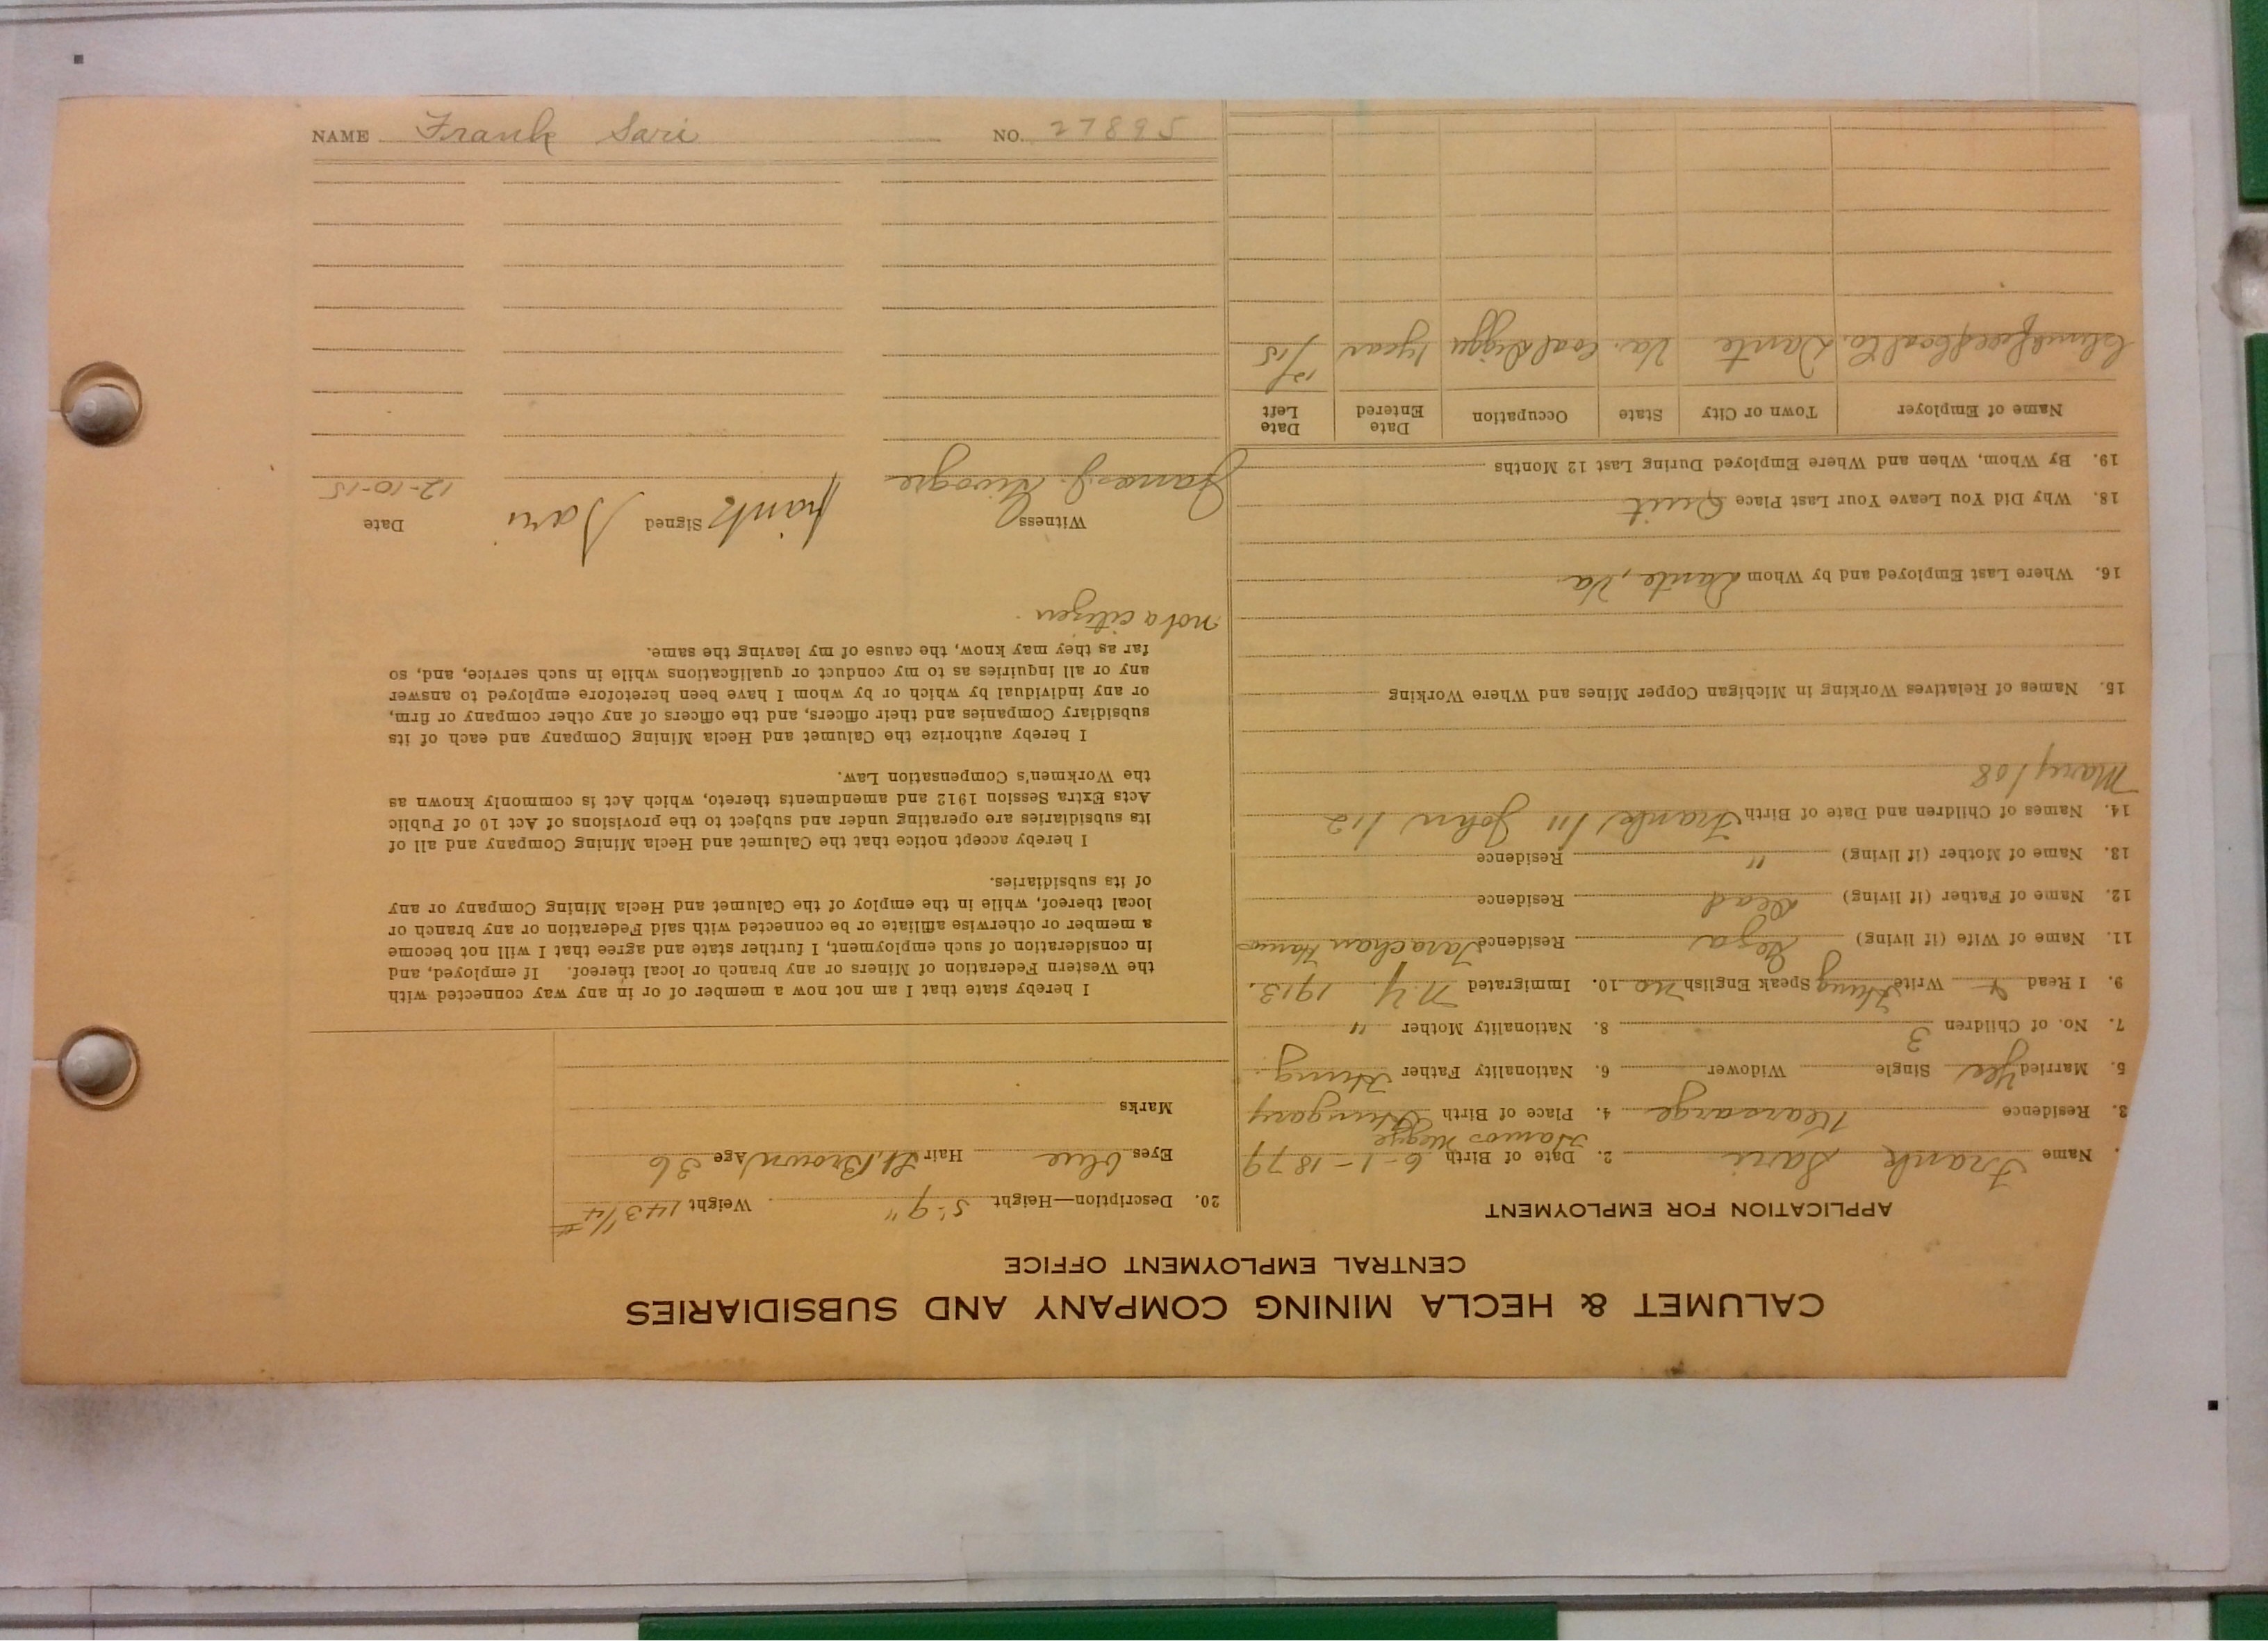 CALUMET & HECLA MINING COMPANY AND SUBSIDIARIES
CENTRAL EMPLOYMENT OFFICE
APPLICATION FOR EMPLOYMENT
Name Frank Sari 2. Date of Birth 6-1-1879
3. Residence Kearsarge 4. Place of Birth Hungary
5. Married Yes Single Widower 6. Nationality Father Hung.
7. No. of Children 3 8. Nationality Mother "
9. I Read & Write Hung Speak English no 10. Immigrated N.Y. 1913.
11. Name of Wife (if living) Residence
12. Name of Father (if living) Dead Residence
13. Name of Mother (if living) " Residence
14. Names of Children and Date of Birth Frank / 11 John / 12
Mary / 08
15. Names of Relatives Working in Michigan Copper Mines and Where Working
16. Where Last Employed and by Whom Dante, Va
18. Why Did You Leave Your Last Place Quit
19. By Whom, When and Where Employed During Last 12 Months
Name of Employer Town or City State Occupation Date Entered Date Left
Coal Co. Dante Va. Coal Digger 1 year 12/15
20. Description—Height 5'-9" Weight 143 1/4 #
Eyes blue Hair Lt. Brown Age 36
Marks
I hereby state that I am not now a member of or in any way connected with
the Western Federation of Miners or any branch or local thereof. If employed, and
in consideration of such employment, I further state and agree that I will not become
a member or otherwise affiliate or be connected with said Federation or any branch or
local thereof, while in the employ of the Calumet and Hecla Mining Company or any
of its subsidiaries.
I hereby accept notice that the Calumet and Hecla Mining Company and all of
its subsidiaries are operating under and subject to the provisions of Act 10 of Public
Acts Extra Session 1912 and amendments thereto, which Act is commonly known as
the Workmen's Compensation Law.
I hereby authorize the Calumet and Hecla Mining Company and each of its
subsidiary Companies and their officers, and the officers of any other company or firm,
or any individual by which or by whom I have been heretofore employed to answer
any or all inquiries as to my conduct or qualifications while in such service, and, so
far as they may know, the cause of my leaving the same.
not a citizen
Witness Signed Date
James J. Frank Sari 12-10-15
NAME Frank Sari NO. 27895